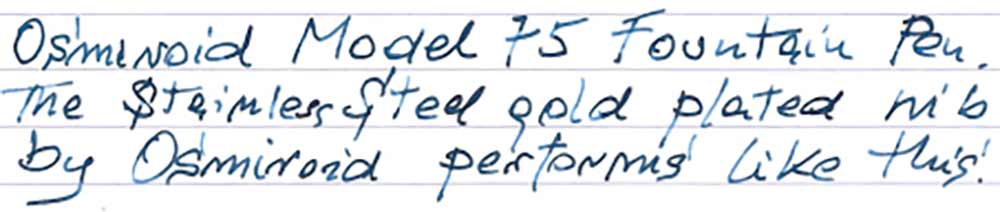 Osmiroid Model 75 Fountain Pen.
The Stainless Steel gold plated nib
by Osmiroid performs like this!